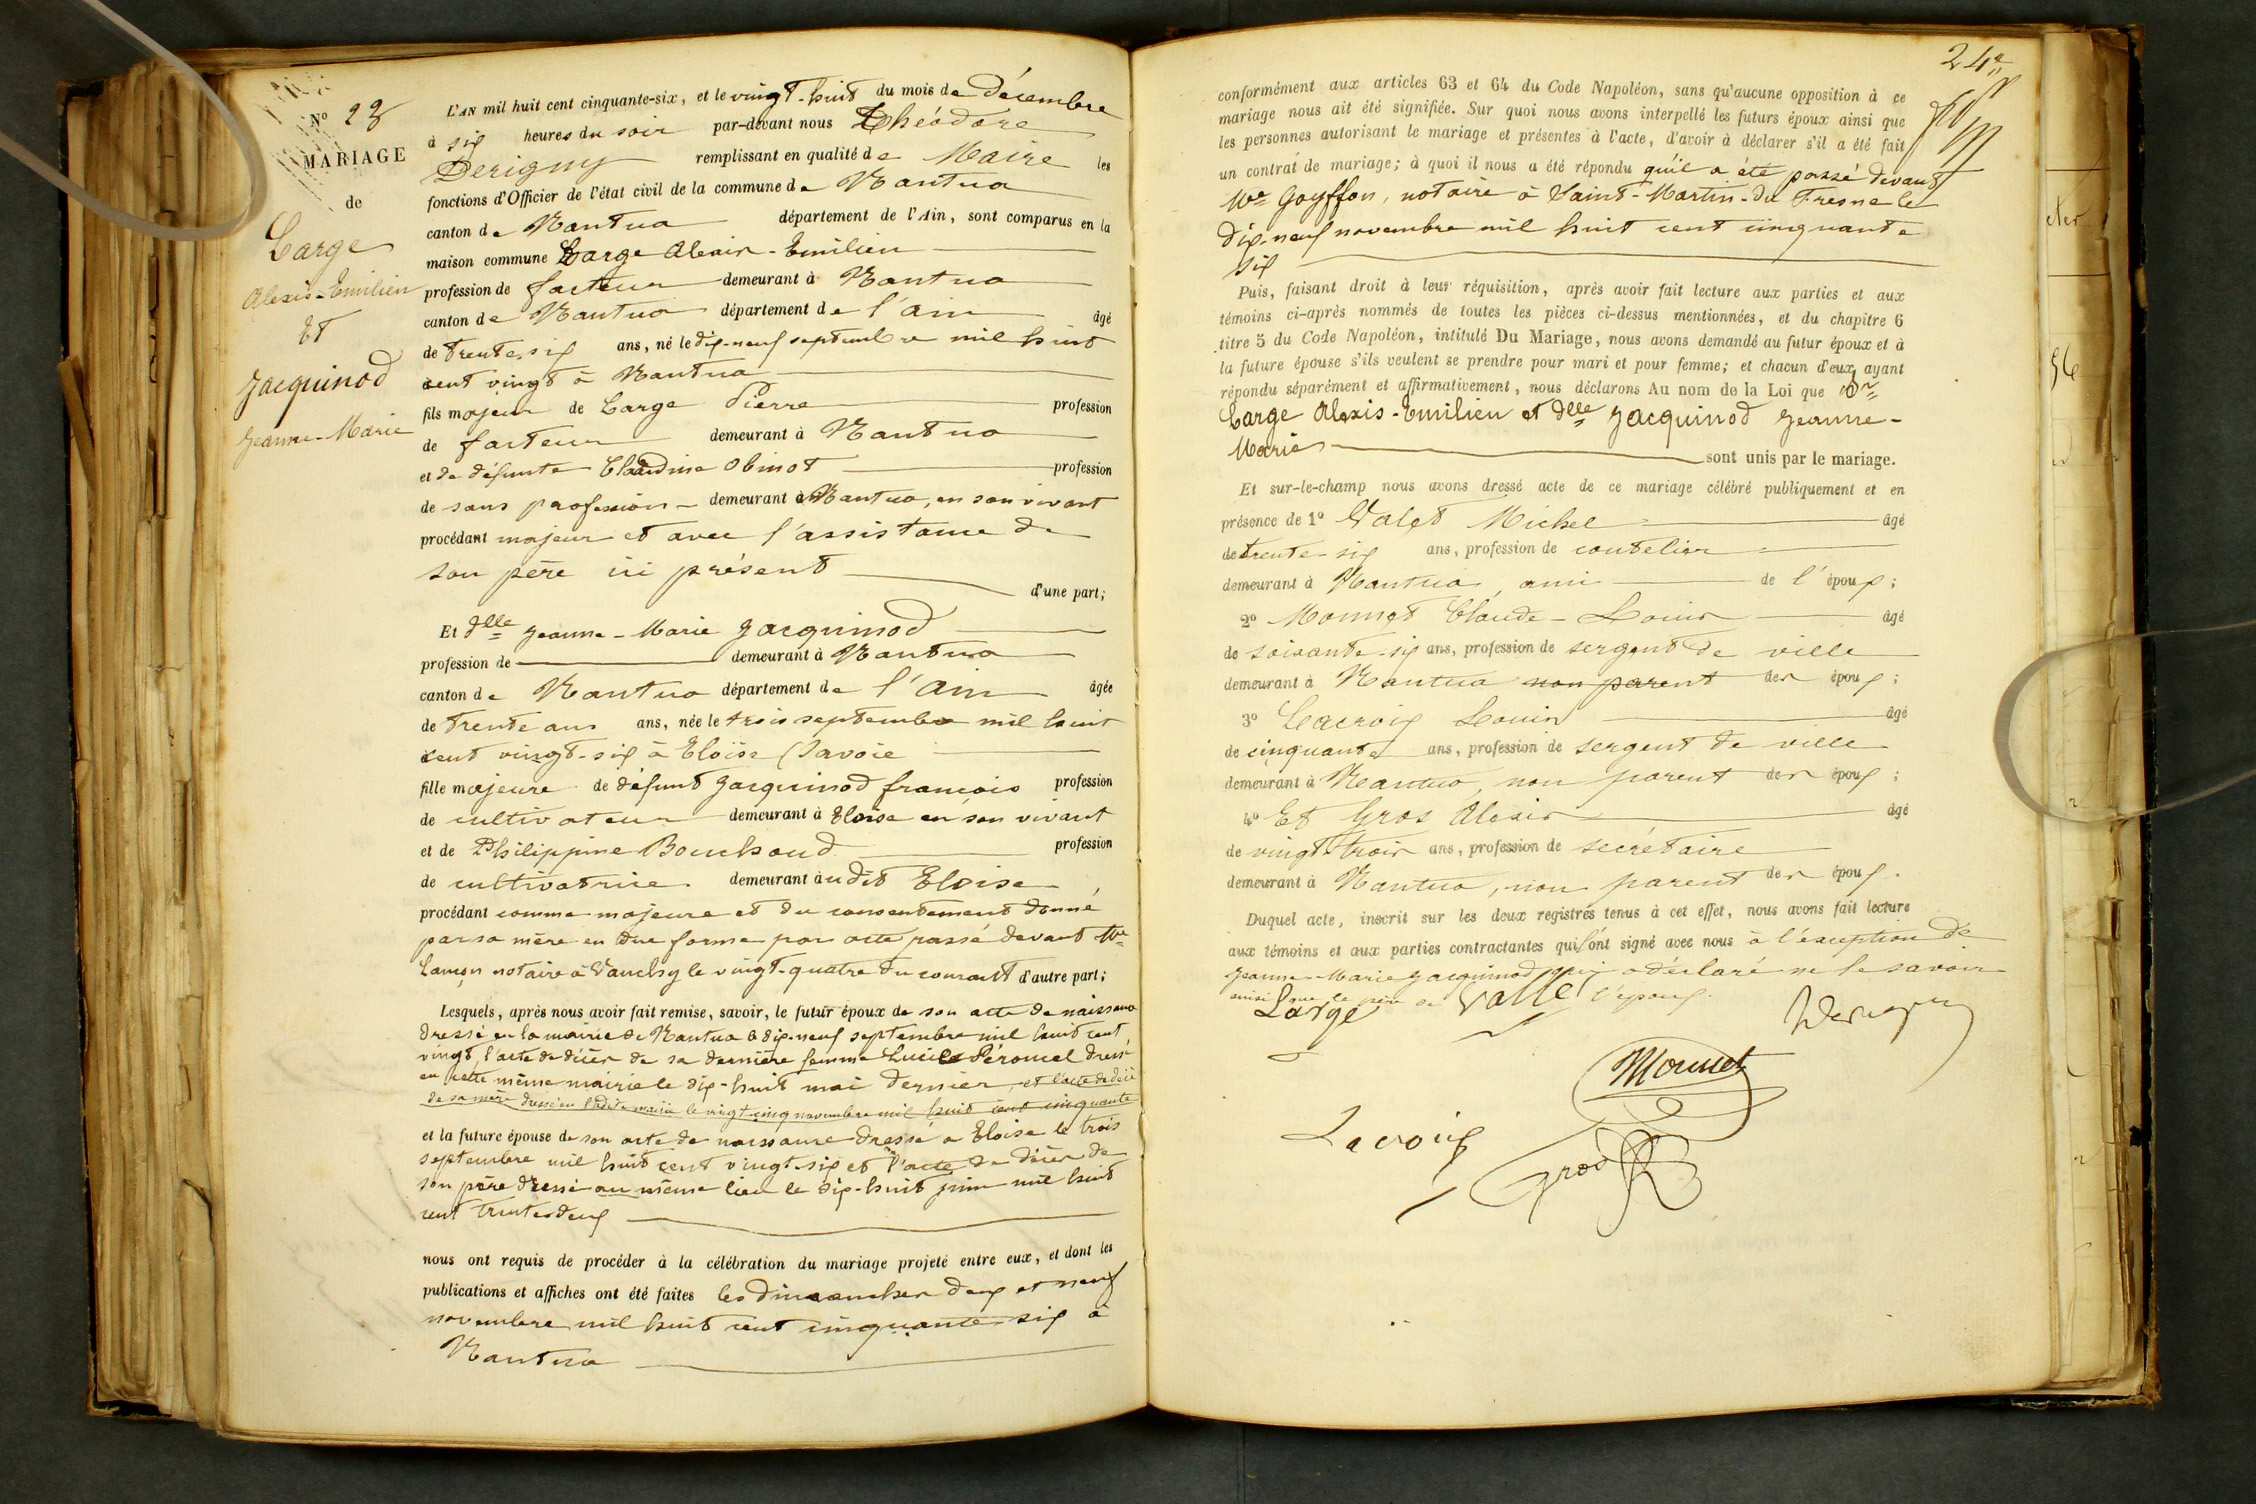 N° 28
MARIAGE
de
Large
Alexis-Emilien
et
Jacquinod
Jeanne-Marie
L'AN mil huit cent cinquante-six, et le vingt-huit du mois de décembre
à six heures du soir par-devant nous Théodore
Derigny remplissant en qualité de Maire les
fonctions d'Officier de l'état civil de la commune de Nantua
canton de Nantua département de l'Ain, sont comparus en la
maison commune Large Alexis-Emilien
profession de facteur demeurant à Nantua
canton de Nantua département de l'Ain âgé
de trente six ans, né le dix-neuf septembre mil huit
cent vingt à Nantua
fils majeur de Large Pierre profession
de facteur demeurant à Nantua
et de défunte Claudine Obinot profession
de sans profession demeurant à Nantua, en son vivant
procédant majeur et avec l'assistance de
son père ici présent
d'une part;
Et dlle Jeanne-Marie Jacquinod
profession de demeurant à Nantua
canton de Nantua département de l'Ain âgée
de trente ans ans, née le trois septembre mil huit
cent vingt-six à Eloise (Savoie
fille majeure de défunt Jacquinod françois profession
de cultivateur demeurant à Eloise en son vivant
et de Philippine Bouchoud profession
de cultivatrice demeurant àudit Eloise
procédant comme majeure et du consentement donné
par sa mère en due forme par acte passé devant Me
Lançon notaire à Vanchy le vingt-quatre du courant d'autre part;
Lesquels, après nous avoir fait remise, savoir, le futur époux de son acte de naissance
dressé en la mairie de Nantua le dix-neuf septembre mil huit cent
vingt, l'acte de décès de sa dernière femme Lucile Péronnel dressé
en cette même mairie le dix-huit mai dernier et l'acte de décès
de sa mère dressé en ladite mairie le vingt cinq novembre mil huit cent cinquante
et la future épouse de son acte de naissance dressé à Eloise le trois
septembre mil huit cent vingt-six et l'acte de décès de
son père dressé au même lieu le dix-huit juin mil huit
cent trente deux
nous ont requis de procéder à la célébration du mariage projeté entre eux, et dont les
publications et affiches ont été faites les dimanches deux et neuf
novembre mil huit cent cinquante-six à
Nantua
24
conformément aux articles 63 et 64 du Code Napoléon, sans qu'aucune opposition à ce
mariage nous ait été signifiée. Sur quoi nous avons interpellé les futurs époux ainsi que
les personnes autorisant le mariage et présentes à l'acte, d'avoir à déclarer s'il a été fait
un contrat de mariage; à quoi il nous a été répondu qu'il a été passé devant
Me Goyffon, notaire à Saint-Martin-du Fresne le
dix-neuf novembre mil huit cent cinquante
six
Puis, faisant droit à leur réquisition, après avoir fait lecture aux parties et aux
témoins ci-après nommés de toutes les pièces ci-dessus mentionnées, et du chapitre 6
titre 5 du Code Napoléon, intitulé Du Mariage, nous avons demandé au futur époux et à
la future épouse s'ils veulent se prendre pour mari et pour femme; et chacun d'eux ayant
répondu séparément et affirmativement, nous déclarons Au nom de la Loi que Sr
Large Alexis-Emilien et dlle Jacquinod Jeanne-
Marie sont unis par le mariage.
Et sur-le-champ nous avons dressé acte de ce mariage célébré publiquement et en
présence de 1° Valet Michel âgé
de trente-six ans, profession de coutelier
demeurant à Nantua, ami de l'époux;
2° Monnet Claude-Louis âgé
de soixante-six ans, profession de sergent de ville
demeurant à Nantua non parent des époux;
3° Lacroix Louis âgé
de cinquante ans, profession de sergent de ville
demeurant à Nantua, non parent des époux;
4° Et Gros Alexis âgé
de vingt-trois ans, profession de secrétaire
demeurant à Nantua, non parent des époux.
Duquel acte, inscrit sur les deux registres tenus à cet effet, nous avons fait lecture
aux témoins et aux parties contractantes qui ont signé avec nous à l'exception de
Jeanne-Marie Jacquinod qui a déclaré ne le savoir
ainsi que le père de l'époux.
Large Vallet Derigny
Monnet
Lacroix
Gros
56